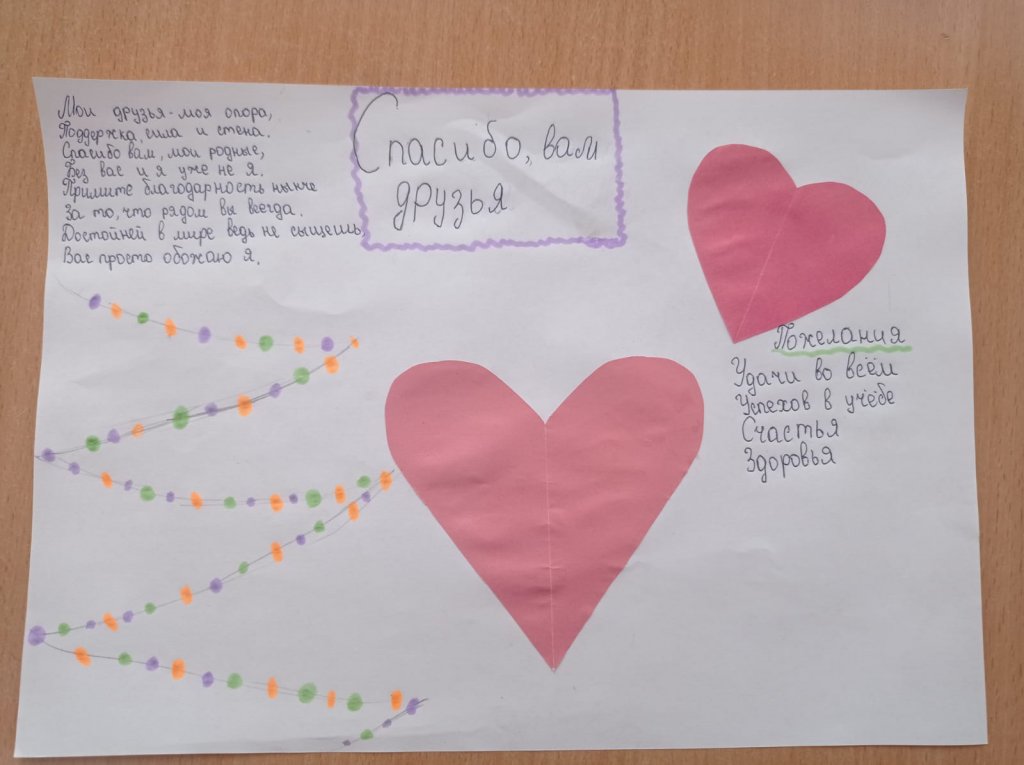 Мои друзья-моя опора,
Поддержка, сила и стена.
Спасибо вам, мои родные,
Без вас и я уже не я.
Примите благодарность нынче
За то, что рядом вы всегда.
Достойней в мире ведь не сыщешь
Вас просто обожаю я.
Спасибо, вам
друзья
Пожелания
Удачи во всём
Успехов в учёбе
Счастья
Здоровья